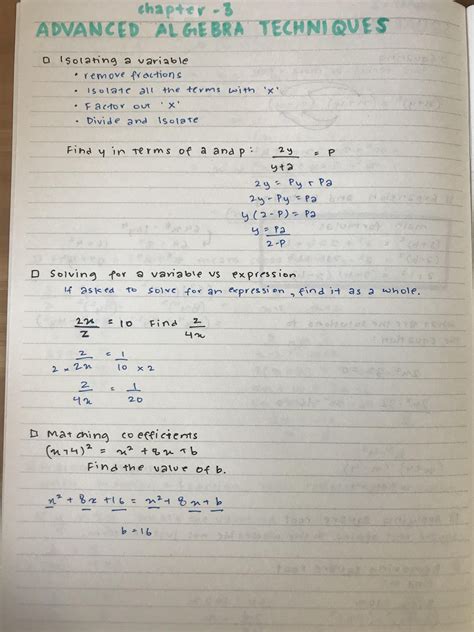 chapter - 3
ADVANCED ALGEBRA TECHNIQUES
□ Isolating a variable
• remove fractions
• Isolate all the terms with 'x'
• Factor out 'x'
• Divide and Isolate
Find y in terms of a and p: 2y/y+a = P
2y = Py + Pa
2y - Py = Pa
y (2-P) = Pa
y = Pa/2-P
□ Solving for a variable vs expression
If asked to solve for an expression, find it as a whole.
2x/z = 10 Find z/4x
z/2 × 2x = 1/10 × 2
z/4x = 1/20
□ Matching coefficients
(x+4)² = x² + 8x + b
Find the value of b.
x² + 8x + 16 = x² + 8x + b
b = 16